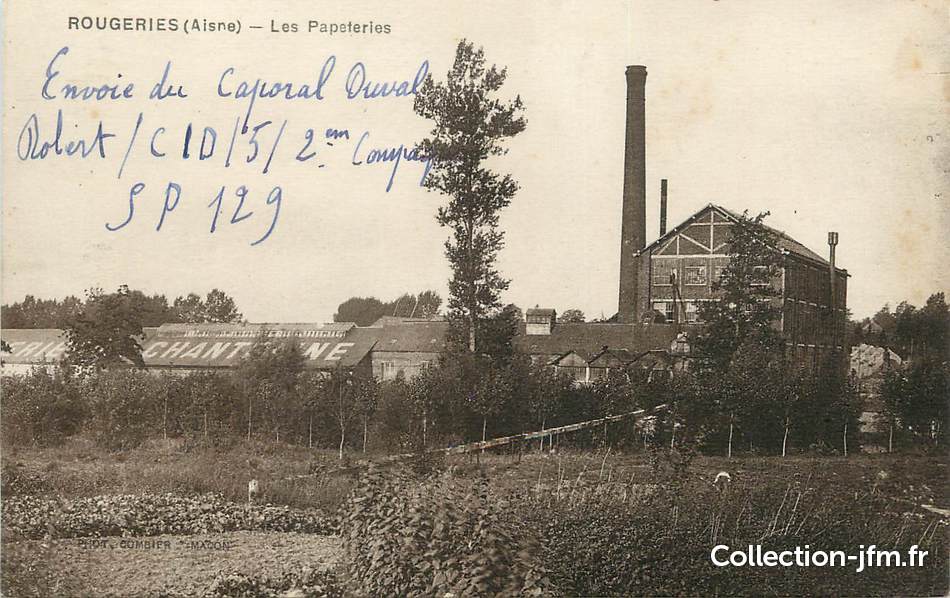 ROUGERIES (Aisne) — Les Papeteries
Envoie du Caporal Duval
Robert / CID / 5 / 2em
SP 129
CHANTE
NE
PHOT. COMBIER MACON
Collection-jfm.fr